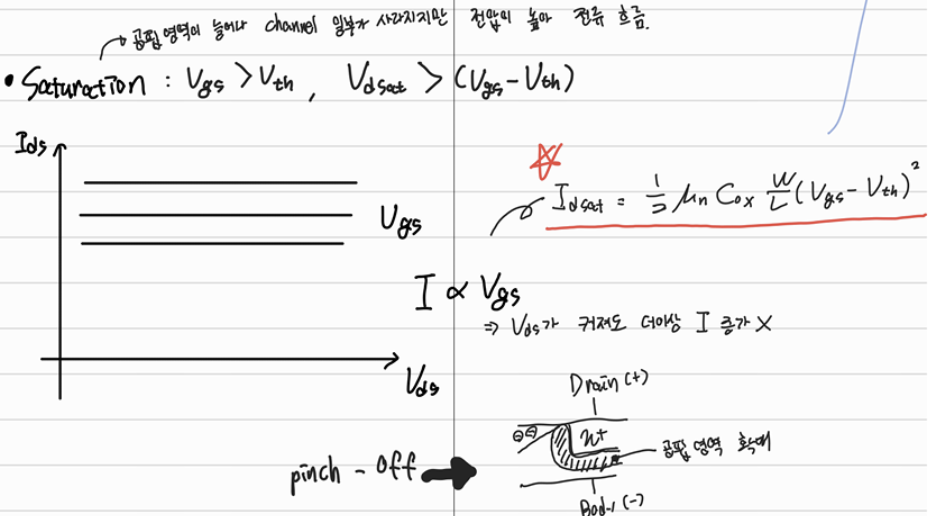 공핍 영역이 늘어나 channel 일부가 사라지지만 전압이 높아 전류 흐름.
• Saturation : Vgs > Vth , Vdsat > (Vgs - Vth)
Ids
Idsat = 1/2 μn Cox W/L (Vgs - Vth)²
Vgs
I ∝ Vgs
⇒ Vds가 커져도 더이상 I 증가 X
Vds
Drain (+)
⊖⊖ n+
공핍 영역 확대
pinch - off
Body (-)